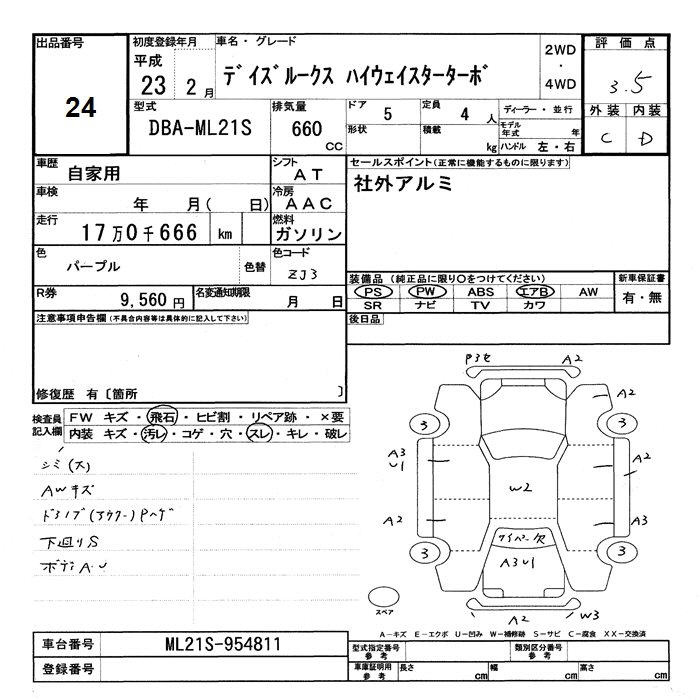 出品番号
24
初度登録年月
平成
23 2 月
車名・グレード
デイズルークス ハイウェイスターターボ
2WD
・
4WD
評価点
3.5
外装 内装
C D
型式
DBA-ML21S
排気量
660 CC
ドア 5
形状
定員 4 人
積載 kg
ディーラー・並行
モデル年式 年
ハンドル 左・右
車歴 自家用
シフト AT
車検 年 月( 日)
冷房 AAC
走行 17万0千666 km
燃料 ガソリン
色 パープル 色替
色コード ZJ3
R券 9,560 円
名変通知期限 月 日
セールスポイント(正常に機能するものに限ります)
社外アルミ
装備品(純正品に限り〇をつけてください)
PS PW ABS エアB AW
SR ナビ TV カワ
新車保証書
有・無
後日品
注意事項申告欄(不具合内容等は具体的に記入して下さい)
修復歴 有〔箇所 〕
検査員記入欄
FW キズ・飛石・ヒビ割・リペア跡・×要
内装 キズ・汚レ・コゲ・穴・スレ・キレ・破レ
シミ(大)
AWキズ
ドアノブ(アウター)Pハゲ
下廻りS
ボディA・U
P3セ A2
A2
3 3
A3
U1
A2
W2
A2 A3
ワイパー欠
3 3
A3U1
A2 W3
スペア
A-キズ E-エクボ U-凹み W-補修跡 S-サビ C-腐食 XX-交換済
車台番号 ML21S-954811
登録番号
型式指定番号 参考
類別区分番号 参考
車庫証明用 参考
長さ cm 幅 cm 高さ cm